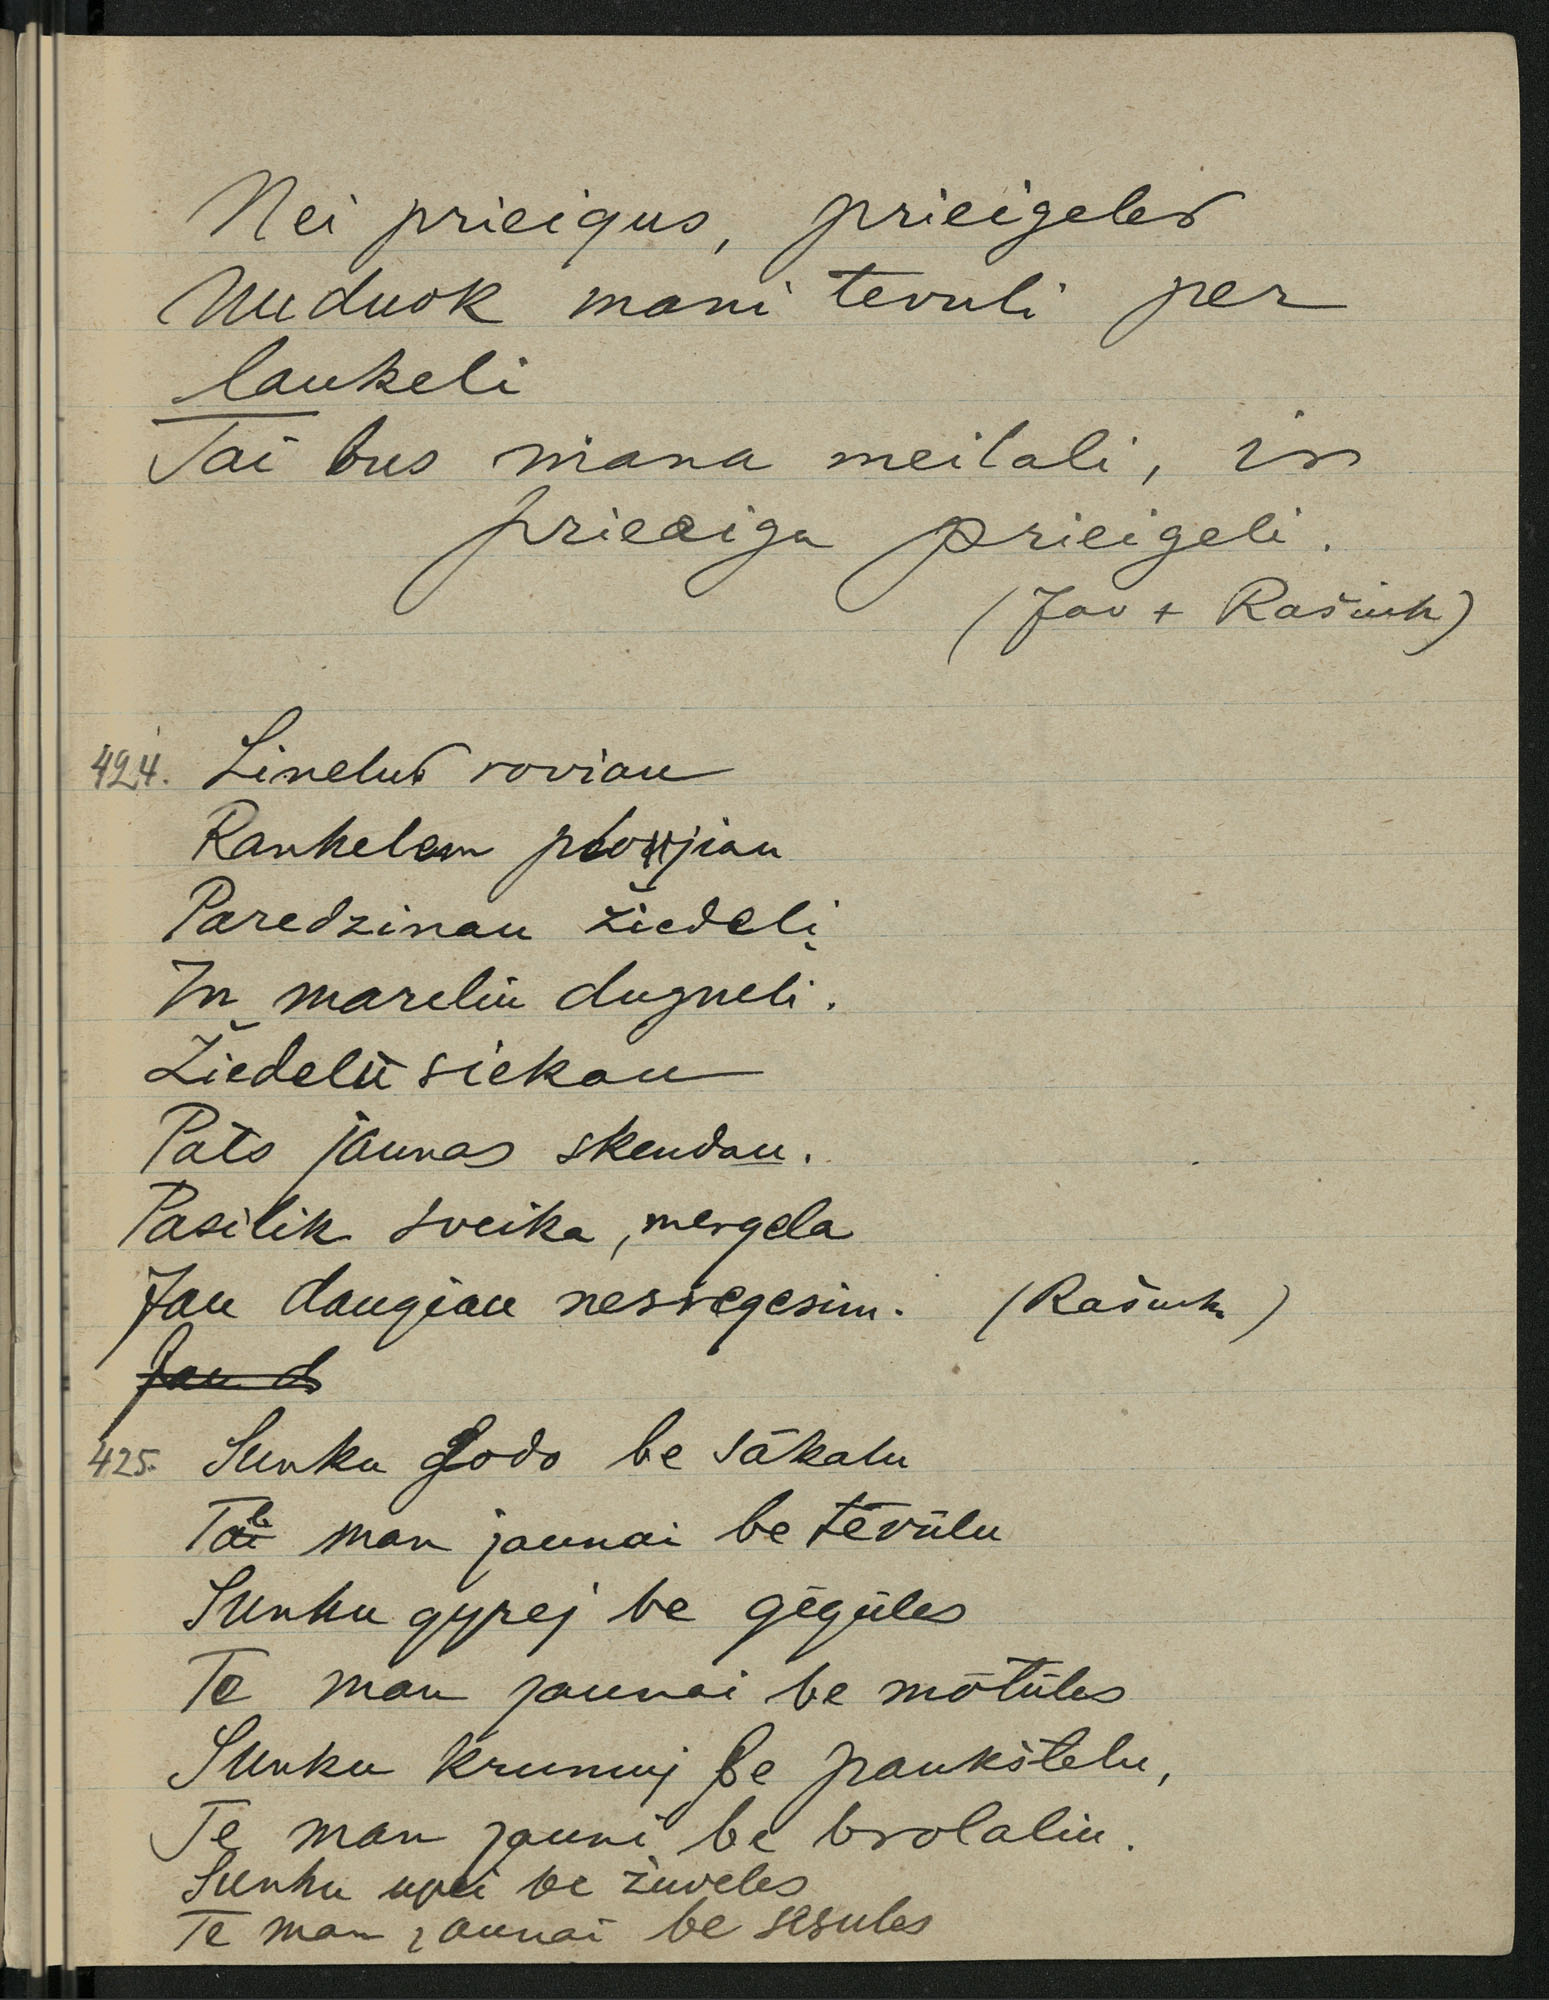 Nei prieigus, prieigeles
Nuduok mani tevuli per
laukeli
Tai bus mana meilali, in
prieeiga prieigeli.
(Jav + Rašiuk)
424. Linelus roviau
Rankelem plowjiau
Paredzinau žiedelį
In mareliu dugneli.
Žiedelii siekau
Pats jaunas skendau.
Pasilik sveika, mergela
Jau daugiau nesregesim. (Rašiuk)
Jau d
425. Sunku godo be sākalu
Tai man jaunai be tēvūlu
Sunku gyrej be gēgūles
Te man jaunai be mōtūles
Sunku krumuj be paukštelu,
Te man jauni be brolaliu.
Sunku upei be žuveles
Te man jaunai be sesules